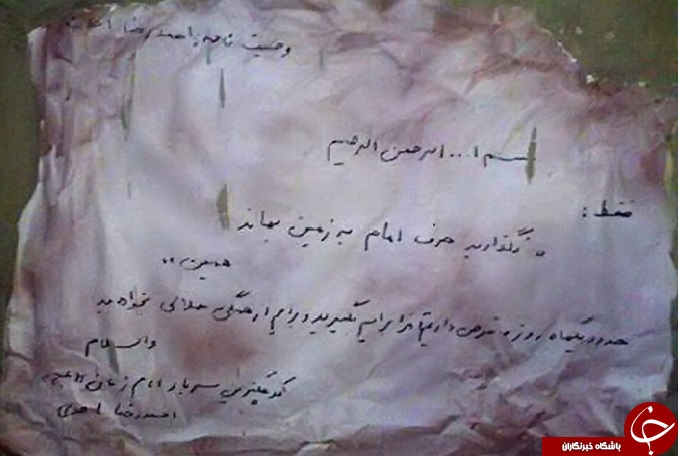 وصیت نامه پاسدار احمدرضا احدی
بسم ا... الرحمن الرحیم
فقط:
" نگذارید حرف امام به زمین بماند
همین "
حدود یکماه روزه قرض دارم تا برایم بگیرید و برایم از همگی حلالی بخواهید
والسلام
کوچکترین سرباز امام زمان (عج)
احمدرضا احدی
باشگاه خبرنگاران